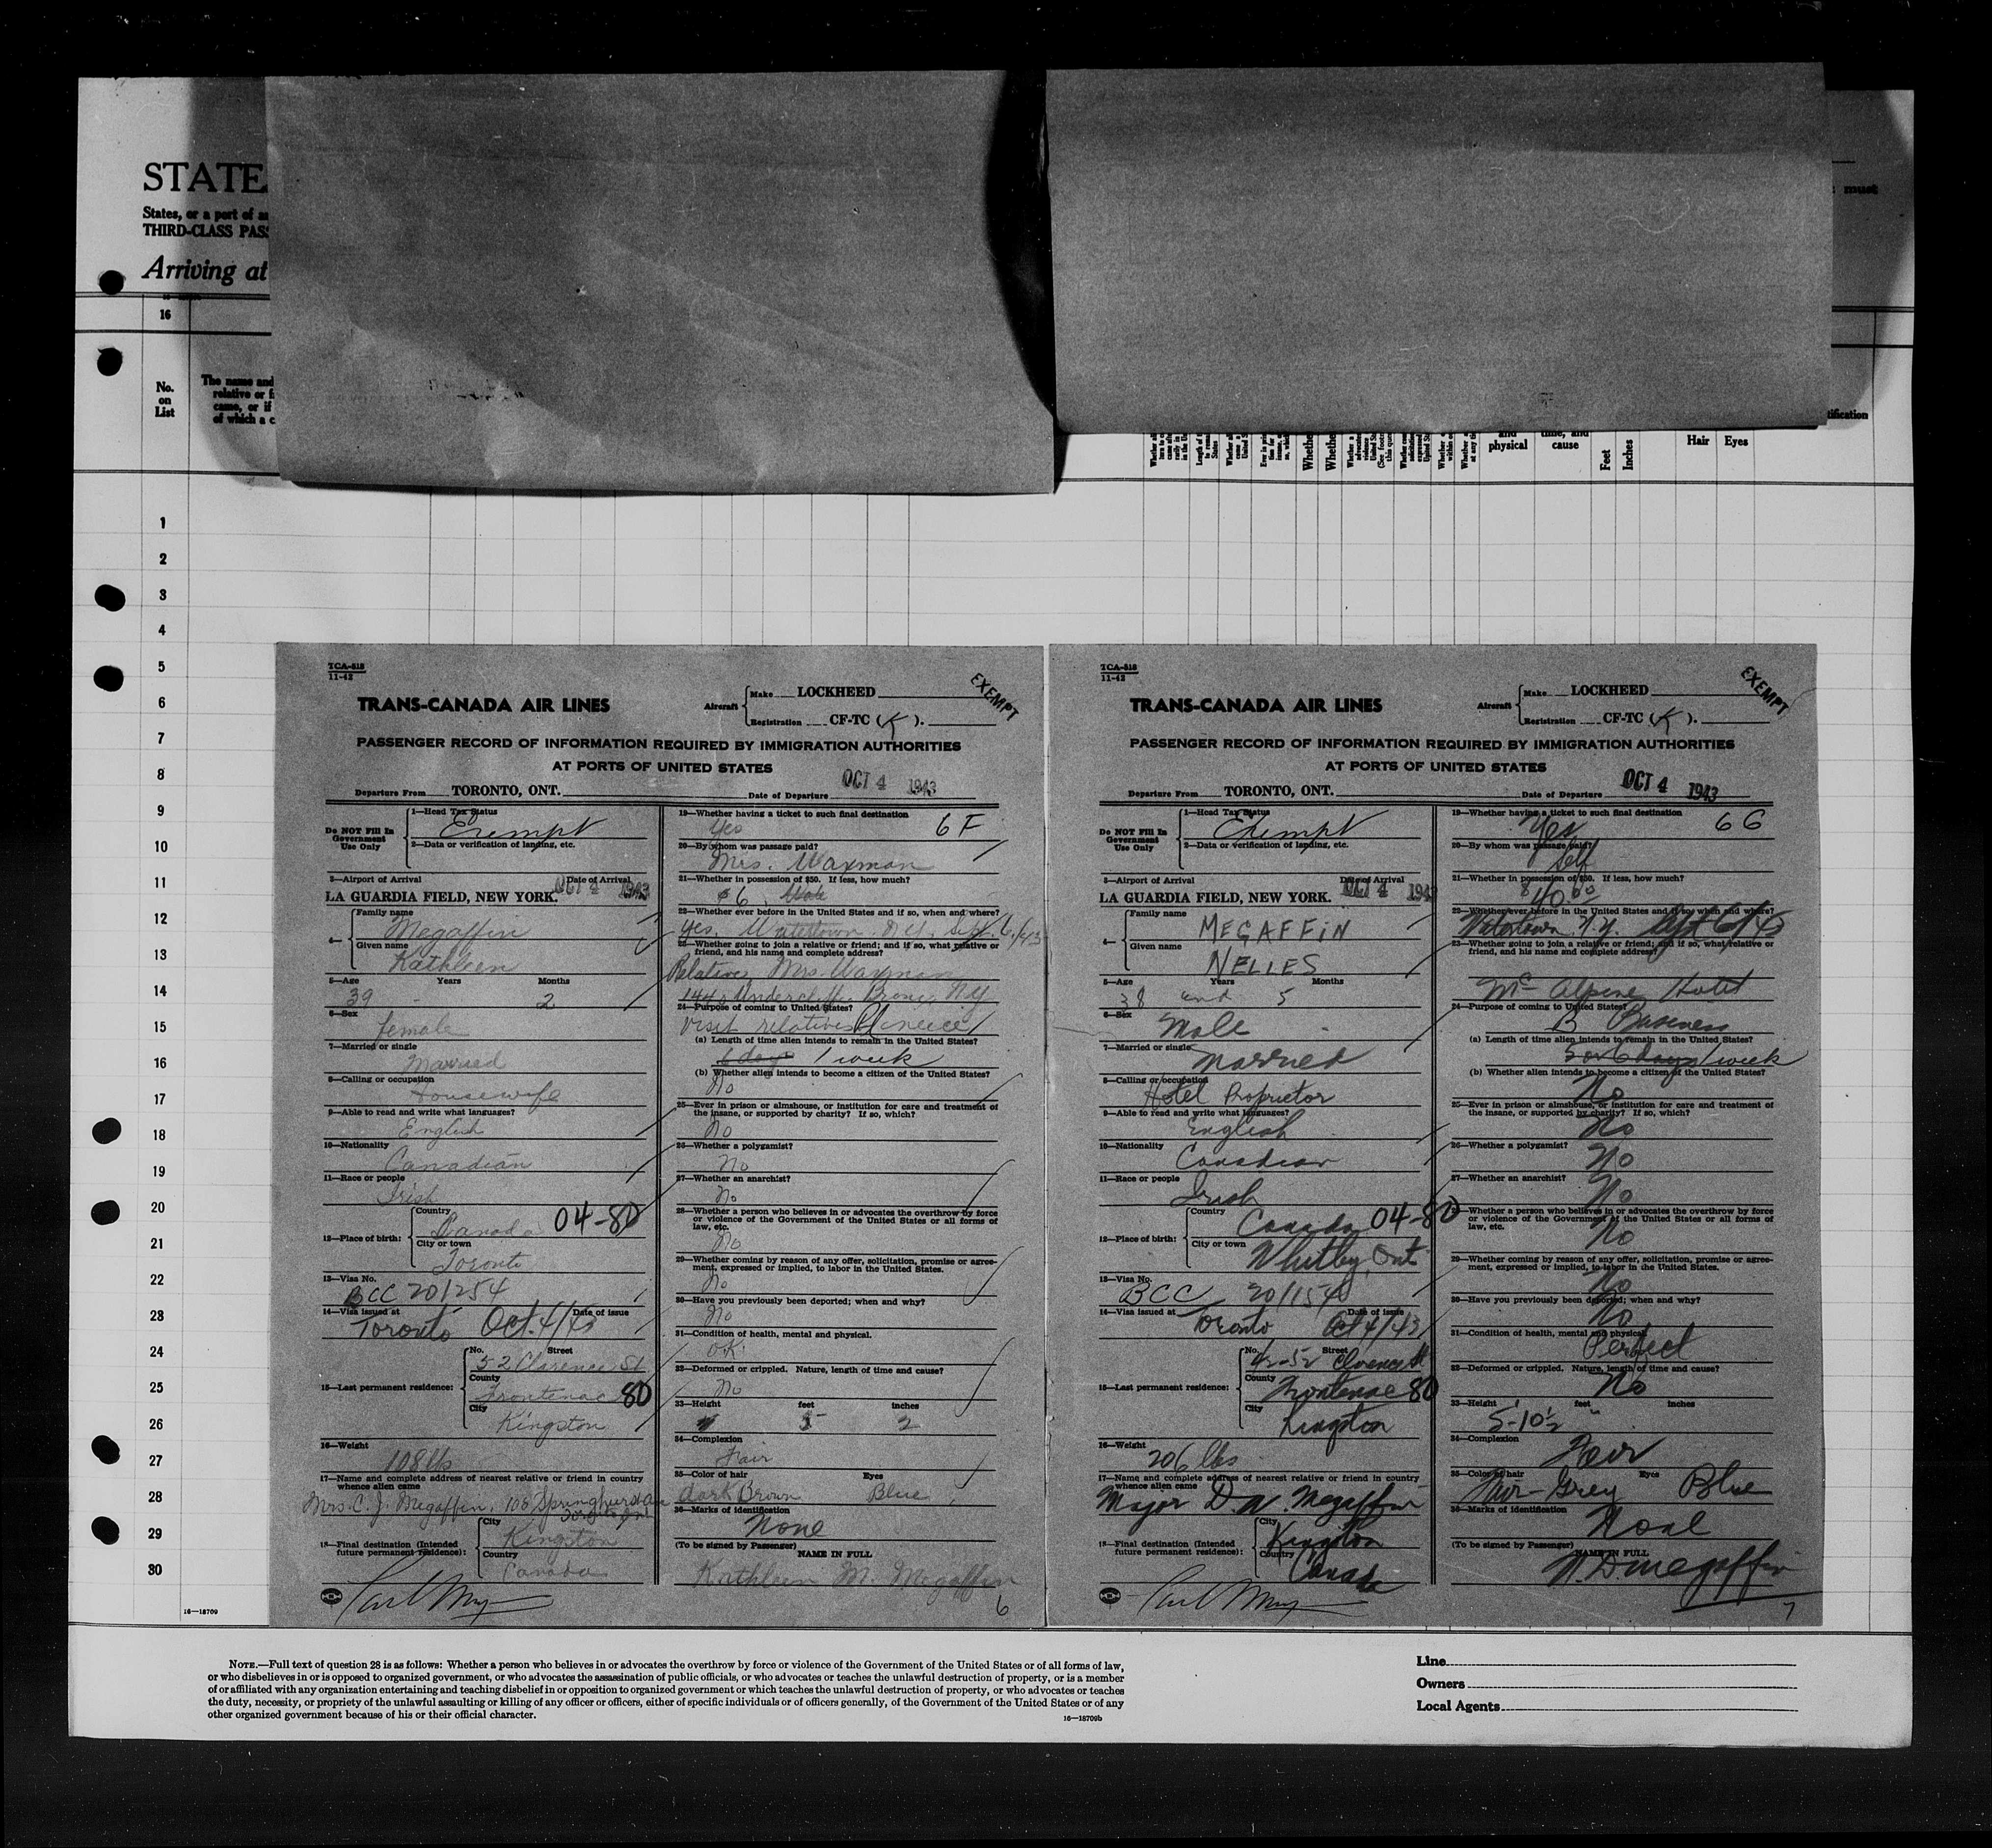 STATE
States, or a port of
THIRD-CLASS PAS
Arriving at
must
16
No.
on
List
The name and
relative or
came, or if
of which a c
tification
and
physical
cause
Feet
Inches
Hair Eyes
1
2
3
4
5
6
7
8
9
10
11
12
13
14
15
16
17
18
19
20
21
22
23
24
25
26
27
28
29
30
16—18709
TCA-518
11-42
TRANS-CANADA AIR LINES
Aircraft
Make LOCKHEED
Registration CF-TC (K).
EXEMPT
PASSENGER RECORD OF INFORMATION REQUIRED BY IMMIGRATION AUTHORITIES
AT PORTS OF UNITED STATES
Departure From TORONTO, ONT. Date of Departure OCT 4 1943
Do NOT Fill In
Government
Use Only
1—Head Tax Status
Exempt
2—Data or verification of landing, etc.
3—Airport of Arrival Date of Arrival
LA GUARDIA FIELD, NEW YORK. OCT 4 1943
4—
Family name
Megaffin
Given name
Kathleen
5—Age Years Months
39 - 2
6—Sex
female
7—Married or single
Married
8—Calling or occupation
Housewife
9—Able to read and write what languages?
English
10—Nationality
Canadian
11—Race or people
Irish
12—Place of birth:
Country
Canada 04-80
City or town
Toronto
13—Visa No.
BCC 20/254
14—Visa issued at Date of issue
Toronto Oct. 4/43
15—Last permanent residence:
No. Street
52 Clarence St.
County
Frontenac 80
City
Kingston
16—Weight
108 lbs
17—Name and complete address of nearest relative or friend in country
whence alien came
Mrs. C. J. Megaffin, 106 Springhurst Ave
Toronto Ont
18—Final destination (Intended
future permanent residence):
City
Kingston
Country
Canada
19—Whether having a ticket to such final destination
Yes 6 F
20—By whom was passage paid?
Mrs. Waxman
21—Whether in possession of $50. If less, how much?
$6
22—Whether ever before in the United States and if so, when and where?
Yes, Watertown N.Y. Sept. 6/43
23—Whether going to join a relative or friend; and if so, what relative or
friend, and his name and complete address?
Relative, Mrs. Waxman
Undercliffe Bronx, N.Y
24—Purpose of coming to United States?
Visit relatives neice
(a) Length of time alien intends to remain in the United States?
6 days 1 week
(b) Whether alien intends to become a citizen of the United States?
No
25—Ever in prison or almshouse, or institution for care and treatment of
the insane, or supported by charity? If so, which?
No
26—Whether a polygamist?
No
27—Whether an anarchist?
No
28—Whether a person who believes in or advocates the overthrow by force
or violence of the Government of the United States or all forms of
law, etc.
No
29—Whether coming by reason of any offer, solicitation, promise or agree-
ment, expressed or implied, to labor in the United States.
No
30—Have you previously been deported; when and why?
No
31—Condition of health, mental and physical.
O.K.
32—Deformed or crippled. Nature, length of time and cause?
No
33—Height feet inches
5 2
34—Complexion
Fair
35—Color of hair Eyes
dark Brown Blue
36—Marks of identification
None
(To be signed by Passenger)
NAME IN FULL
Kathleen M. Megaffin
6
TCA-518
11-42
TRANS-CANADA AIR LINES
Aircraft
Make LOCKHEED
Registration CF-TC (K).
EXEMPT
PASSENGER RECORD OF INFORMATION REQUIRED BY IMMIGRATION AUTHORITIES
AT PORTS OF UNITED STATES
Departure From TORONTO, ONT. Date of Departure OCT 4 1943
Do NOT Fill In
Government
Use Only
1—Head Tax Status
Exempt
2—Data or verification of landing, etc.
3—Airport of Arrival Date of Arrival
LA GUARDIA FIELD, NEW YORK. OCT 4 1943
4—
Family name
MEGAFFIN
Given name
NELLES
5—Age Years Months
38 and 5
6—Sex
Male
7—Married or single
Married
8—Calling or occupation
Hotel Proprietor
9—Able to read and write what languages?
English
10—Nationality
Canadian
11—Race or people
Irish
12—Place of birth:
Country
Canada 04-80
City or town
Whitby, Ont
13—Visa No.
BCC 20/154
14—Visa issued at Date of issue
Toronto Oct 4/43
15—Last permanent residence:
No. Street
42-52 Clarence St
County
Frontenac 80
City
Kingston
16—Weight
206 lbs
17—Name and complete address of nearest relative or friend in country
whence alien came
Major D. W. Megaffin
18—Final destination (Intended
future permanent residence):
City
Kingston
Country
Canada
19—Whether having a ticket to such final destination
Yes 6 G
20—By whom was passage paid?
Self
21—Whether in possession of $50. If less, how much?
$40.00
22—Whether ever before in the United States and if so, when and where?
Watertown, N.Y. Sept 6/43
23—Whether going to join a relative or friend; and if so, what relative or
friend, and his name and complete address?
Mc Alpine Hotel
24—Purpose of coming to United States?
B Business
(a) Length of time alien intends to remain in the United States?
5 or 6 days 1 week
(b) Whether alien intends to become a citizen of the United States?
No
25—Ever in prison or almshouse, or institution for care and treatment of
the insane, or supported by charity? If so, which?
No
26—Whether a polygamist?
No
27—Whether an anarchist?
No
28—Whether a person who believes in or advocates the overthrow by force
or violence of the Government of the United States or all forms of
law, etc.
No
29—Whether coming by reason of any offer, solicitation, promise or agree-
ment, expressed or implied, to labor in the United States.
No
30—Have you previously been deported; when and why?
No
31—Condition of health, mental and physical.
Perfect
32—Deformed or crippled. Nature, length of time and cause?
No
33—Height feet inches
5-10½
34—Complexion
Fair
35—Color of hair Eyes
Fair-Grey Blue
36—Marks of identification
None
(To be signed by Passenger)
NAME IN FULL
N. D Megaffin
7
NOTE.—Full text of question 28 is as follows: Whether a person who believes in or advocates the overthrow by force or violence of the Government of the United States or of all forms of law,
or who disbelieves in or is opposed to organized government, or who advocates the assassination of public officials, or who advocates or teaches the unlawful destruction of property, or is a member
of or affiliated with any organization entertaining and teaching disbelief in or opposition to organized government or which teaches the unlawful destruction of property, or who advocates or teaches
the duty, necessity, or propriety of the unlawful assaulting or killing of any officer or officers, either of specific individuals or of officers generally, of the Government of the United States or of any
other organized government because of his or their official character.
16—18709b
Line
Owners
Local Agents